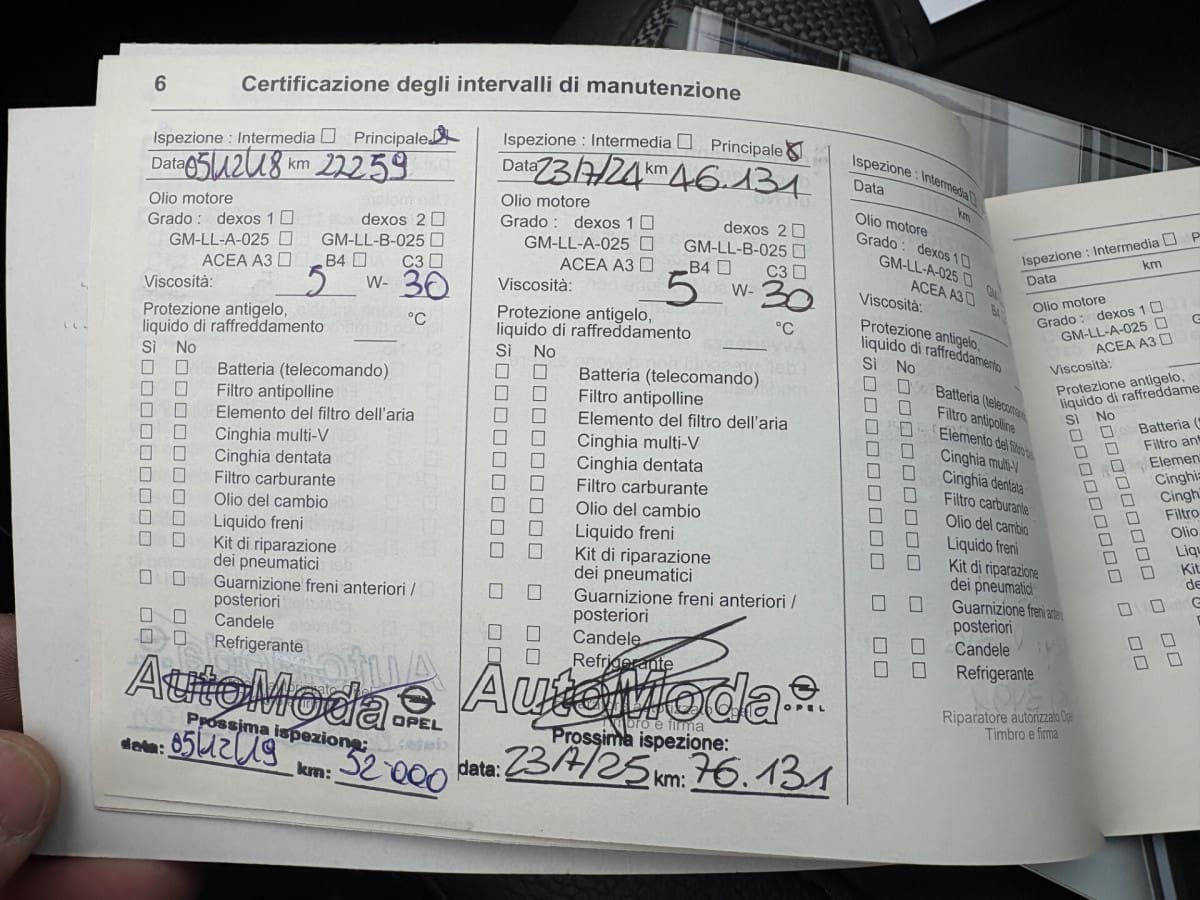 6 Certificazione degli intervalli di manutenzione
Ispezione : Intermedia ☐ Principale
Data 05/12/18 km 22259
Olio motore
Grado : dexos 1 ☐ dexos 2 ☐
GM-LL-A-025 ☐ GM-LL-B-025 ☐
ACEA A3 ☐ B4 ☐ C3 ☐
Viscosità: 5 W- 30
Protezione antigelo,
liquido di raffreddamento °C
Sì No
☐ ☐ Batteria (telecomando)
☐ ☐ Filtro antipolline
☐ ☐ Elemento del filtro dell'aria
☐ ☐ Cinghia multi-V
☐ ☐ Cinghia dentata
☐ ☐ Filtro carburante
☐ ☐ Olio del cambio
☐ ☐ Liquido freni
☐ ☐ Kit di riparazione
dei pneumatici
☐ ☐ Guarnizione freni anteriori /
posteriori
☐ ☐ Candele
☐ ☐ Refrigerante
AutoModa OPEL
Prossima ispezione:
data: 05/12/19 km: 52000
Ispezione : Intermedia ☐ Principale
Data 23/7/24 km 46.131
Olio motore
Grado : dexos 1 ☐ dexos 2 ☐
GM-LL-A-025 ☐ GM-LL-B-025 ☐
ACEA A3 ☐ B4 ☐ C3 ☐
Viscosità: 5 W- 30
Protezione antigelo,
liquido di raffreddamento °C
Sì No
☐ ☐ Batteria (telecomando)
☐ ☐ Filtro antipolline
☐ ☐ Elemento del filtro dell'aria
☐ ☐ Cinghia multi-V
☐ ☐ Cinghia dentata
☐ ☐ Filtro carburante
☐ ☐ Olio del cambio
☐ ☐ Liquido freni
☐ ☐ Kit di riparazione
dei pneumatici
☐ ☐ Guarnizione freni anteriori /
posteriori
☐ ☐ Candele
☐ ☐ Refrigerante
AutoModa OPEL
Timbro e firma
Prossima ispezione:
data: 23/7/25 km: 76.131
Ispezione : Intermedia ☐
Data km
Olio motore
Grado : dexos 1 ☐
GM-LL-A-025 ☐
ACEA A3 ☐ B4
Viscosità:
Protezione antigelo,
liquido di raffreddamento
Sì No
☐ ☐ Batteria
☐ ☐ Filtro antipolline
☐ ☐ Elemento del filtro
☐ ☐ Cinghia multi-V
☐ ☐ Cinghia dentata
☐ ☐ Filtro carburante
☐ ☐ Olio del cambio
☐ ☐ Liquido freni
☐ ☐ Kit di riparazione
dei pneumatici
☐ ☐ Guarnizione freni
posteriori
☐ ☐ Candele
☐ ☐ Refrigerante
Riparatore autorizzato Opel
Timbro e firma
Ispezione : Intermedia ☐
Data km
Olio motore
Grado : dexos 1 ☐
GM-LL-A-025 ☐
ACEA A3 ☐
Viscosità:
Protezione antigelo,
liquido di
Sì No
☐ ☐ Batteria
☐ ☐ Filtro
☐ ☐
☐ ☐
☐ ☐
☐ ☐
☐ ☐ Olio
☐ ☐
☐ ☐ Kit
☐ ☐
☐ ☐
☐ ☐